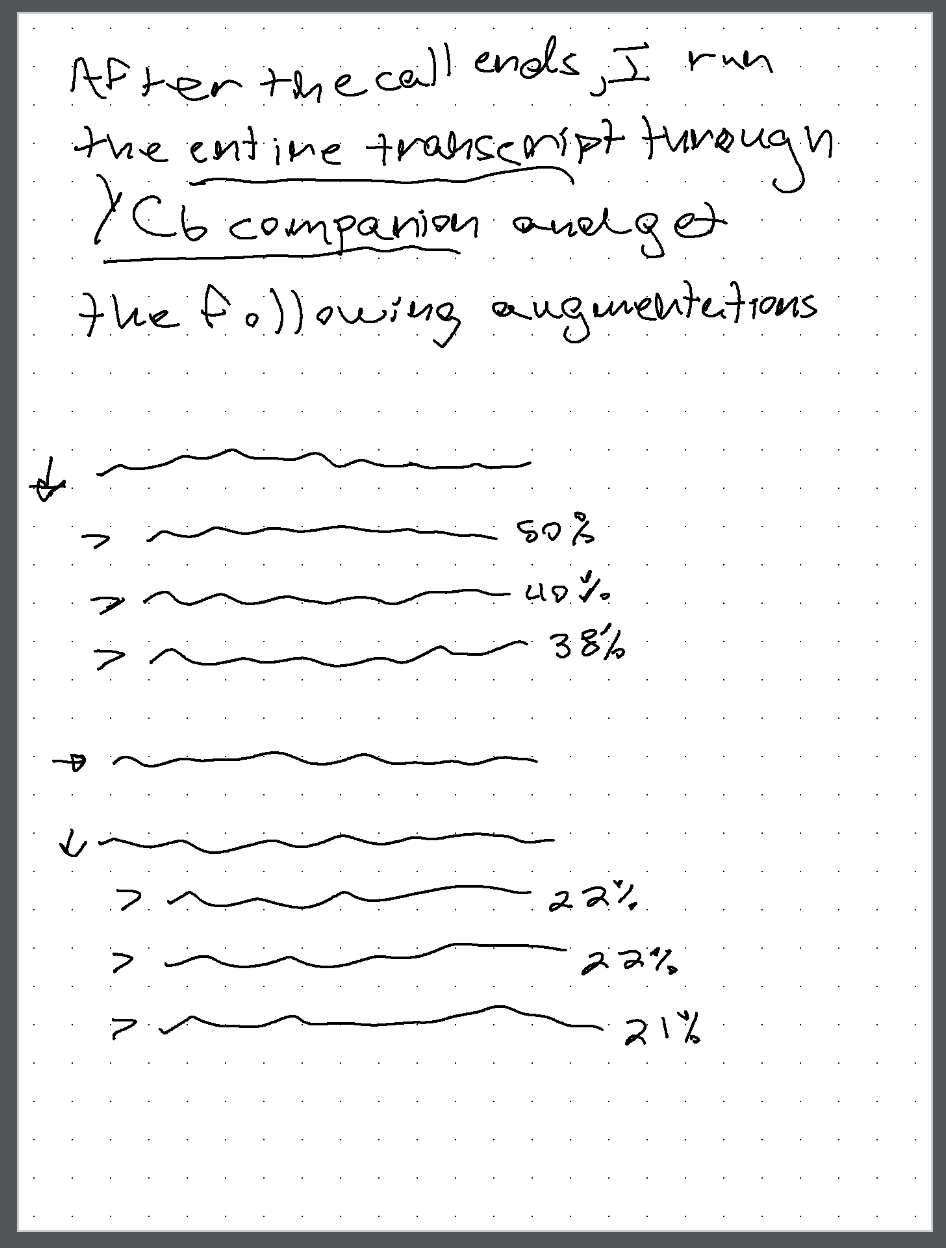 After the call ends, I run
the entire transcript through
YCb companion and get
the following augmentations
50%
40%
38%
22%
22%
21%